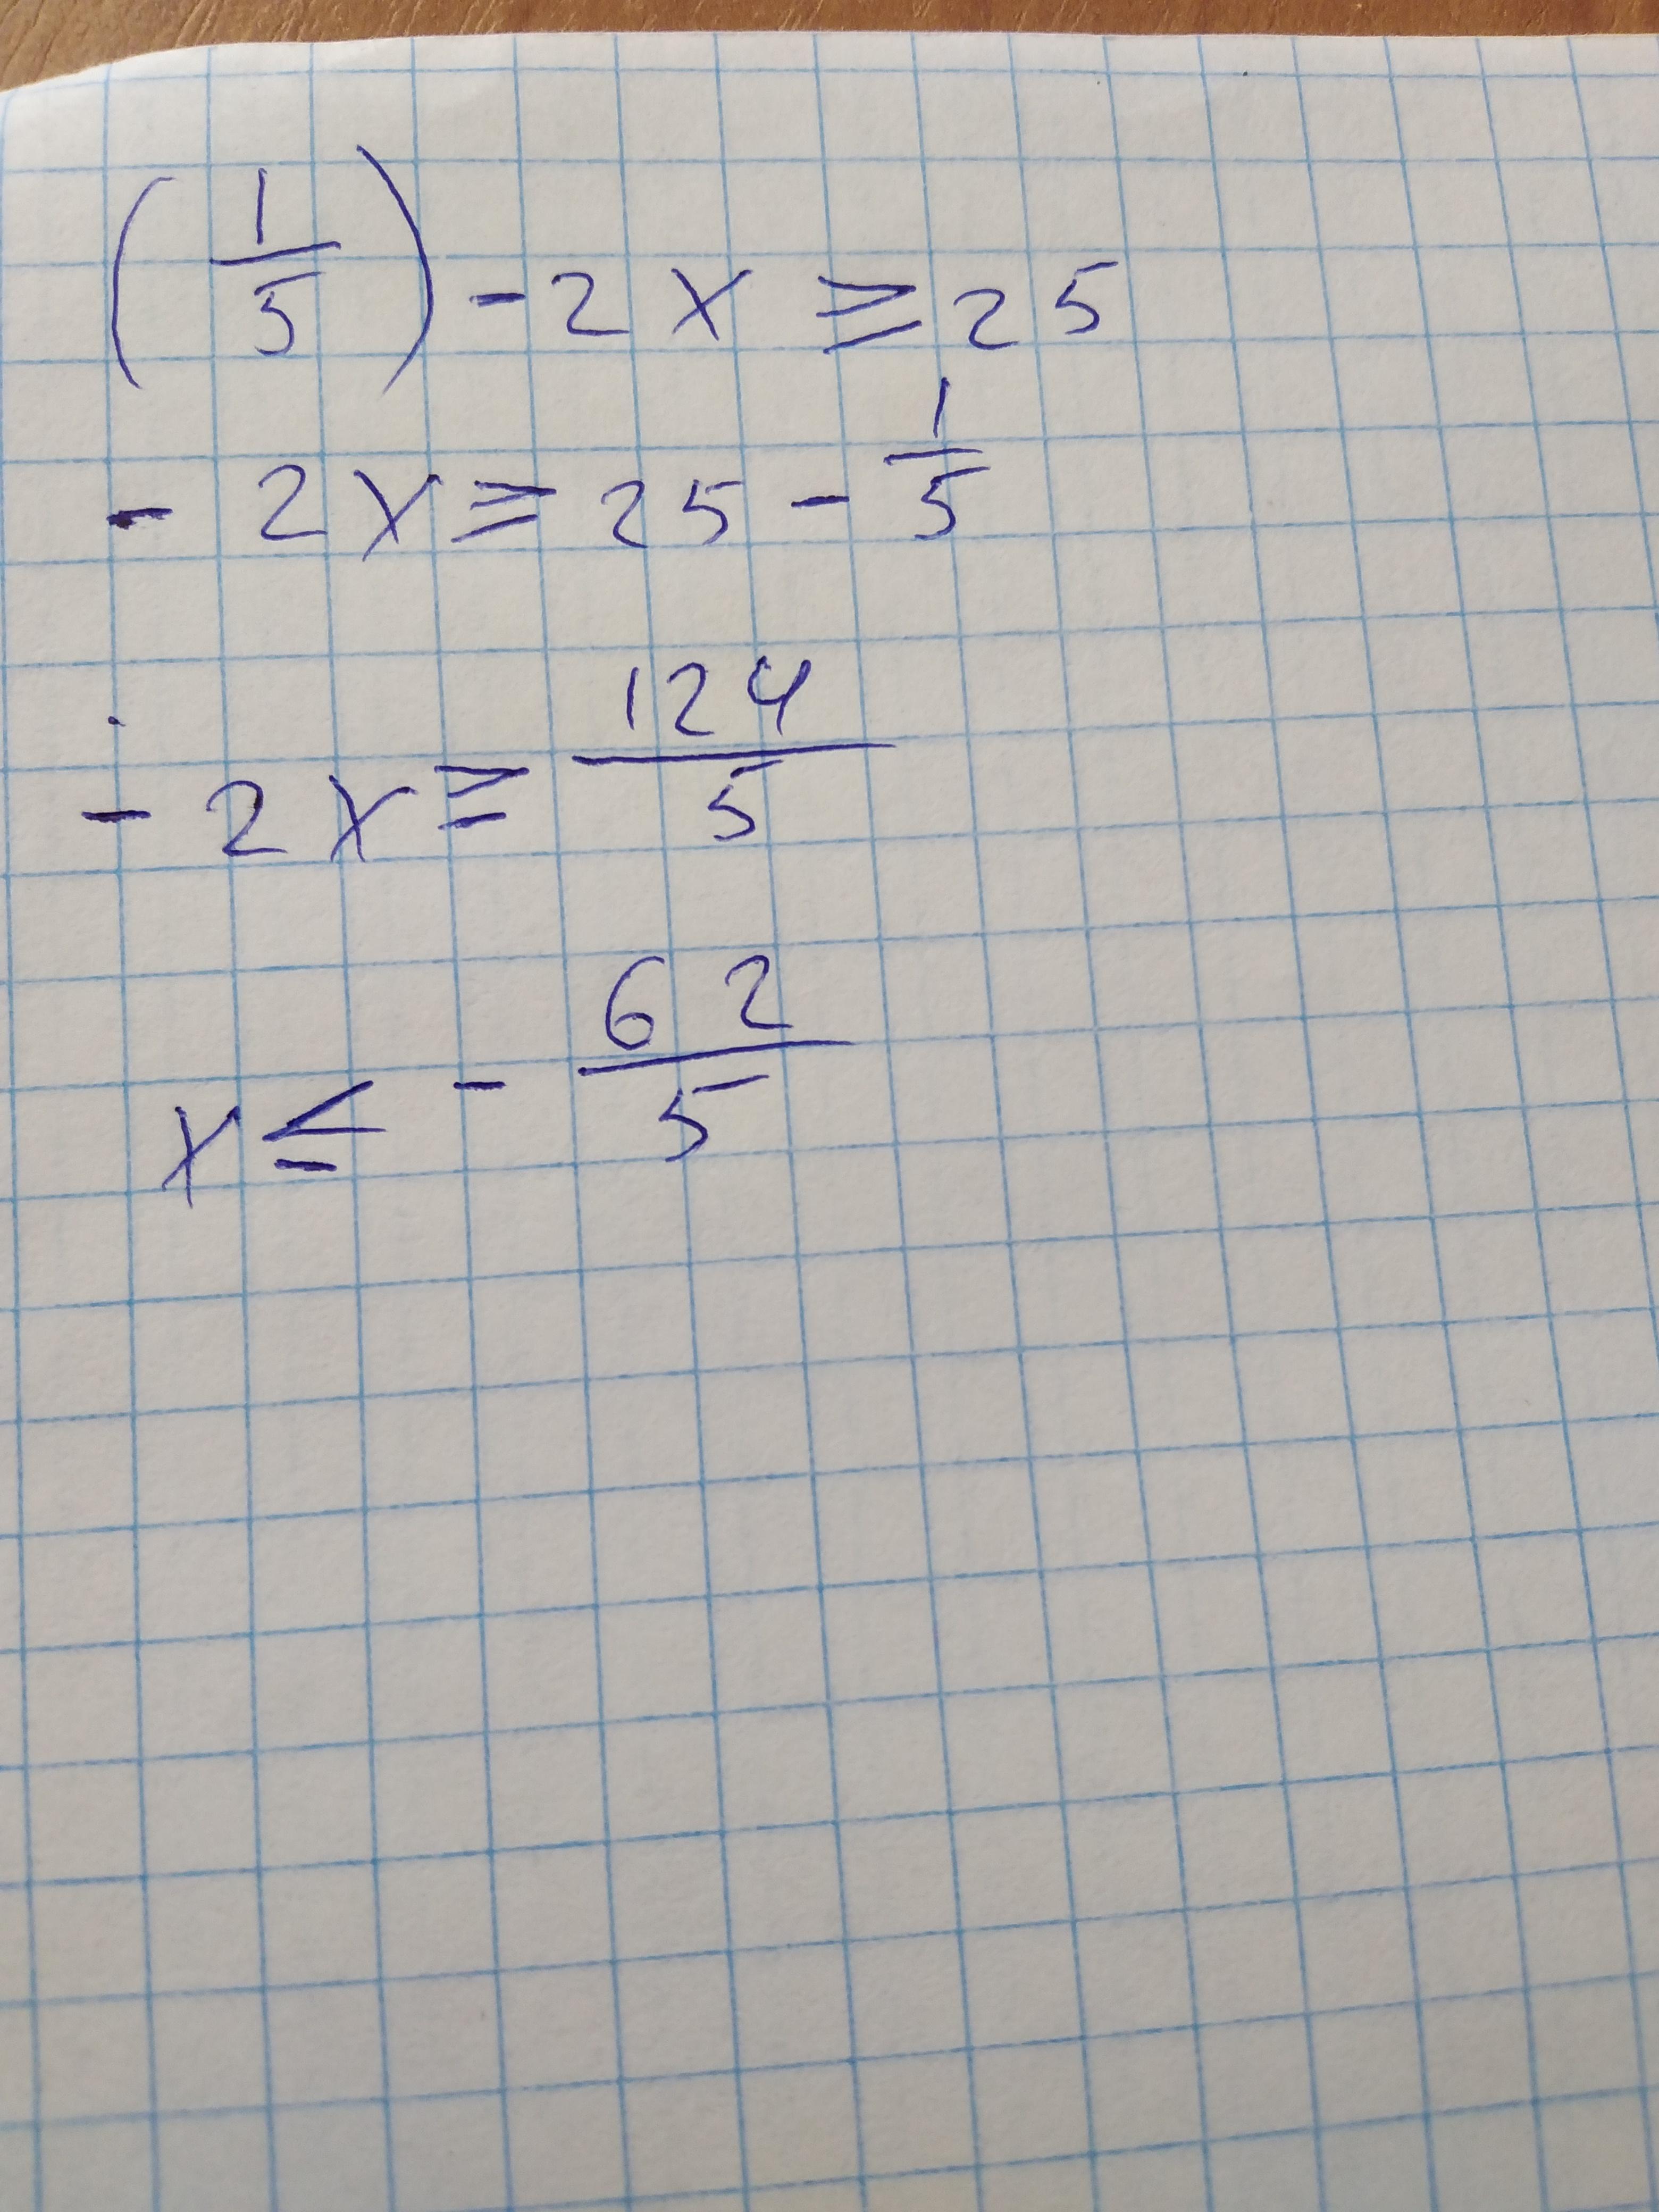 (1/5) - 2x ≥ 25
- 2x ≥ 25 - 1/5
- 2x ≥ 124/5
x ≤ - 62/5